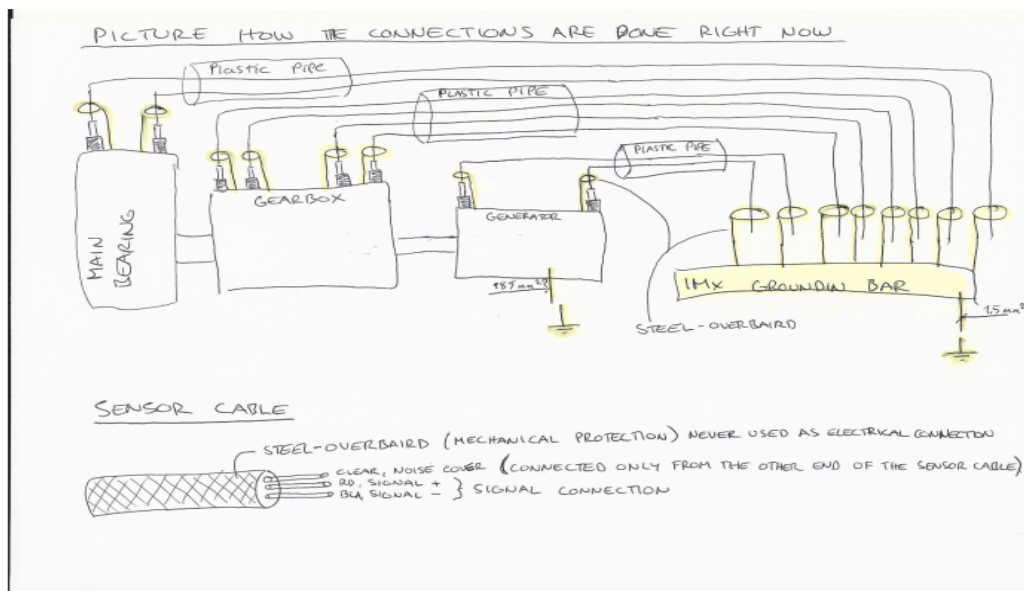 PICTURE HOW THE CONNECTIONS ARE DONE RIGHT NOW
PLASTIC PIPE
PLASTIC PIPE
PLASTIC PIPE
MAIN BEARING
GEARBOX
GENERATOR
IMX GROUNDIN BAR
1,5 mm²
STEEL-OVERBAIRD
SENSOR CABLE
STEEL-OVERBAIRD (MECHANICAL PROTECTION) NEVER USED AS ELECTRICAL CONNECTION
CLEAR, NOISE COVER (CONNECTED ONLY FROM THE OTHER END OF THE SENSOR CABLE)
RD, SIGNAL +
BLA, SIGNAL - } SIGNAL CONNECTION